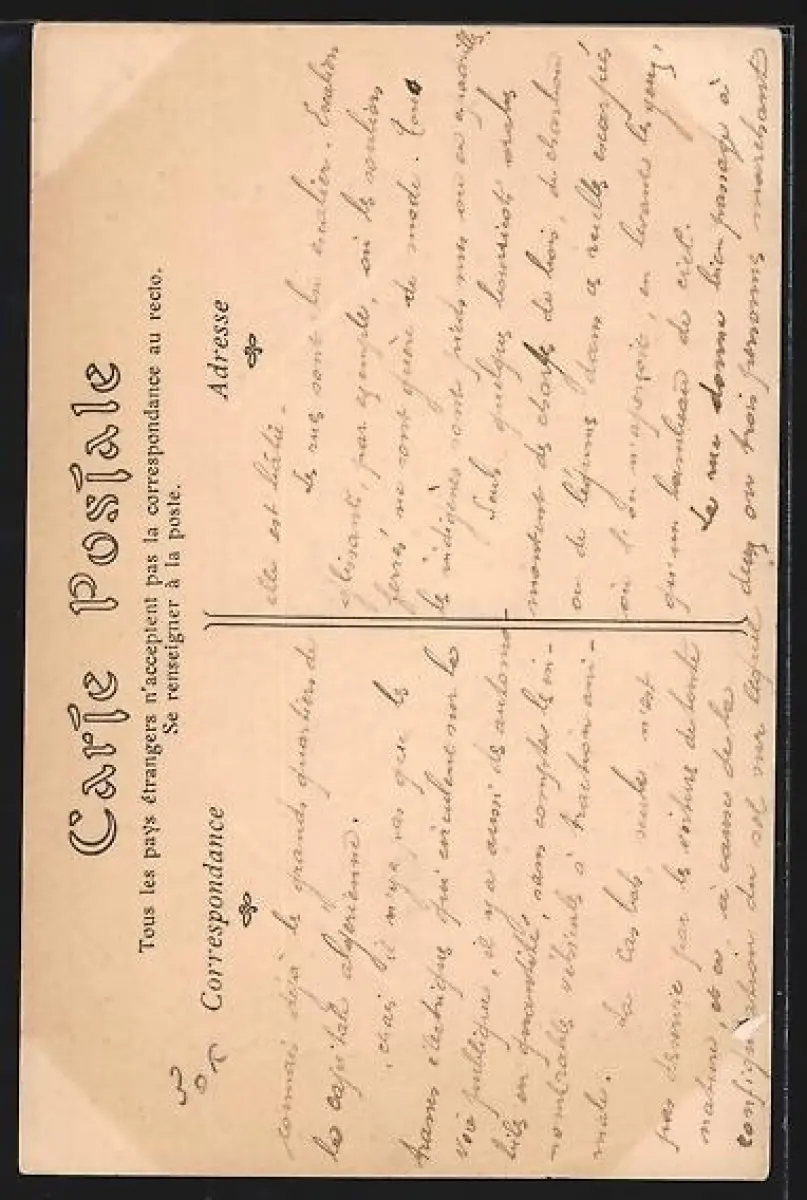 Carte Postale
Tous les pays étrangers n'acceptent pas la correspondance au recto.
Se renseigner à la poste.
Correspondance
Adresse
connais déjà les grands quartiers de
la capitale algérienne.
Mais il n'y a pas que les
trams électriques qui circulent sur la
voie publique, il y a aussi des automo-
biles en quantité, sans compter les in-
nombrables véhicules à traction ani-
male. La Casbah seule n'est
pas desservie par les voitures de toute
nature, et ce à cause de la
configuration du sol sur lequel
elle est bâtie.
Les rues sont en escalier. Escaliers
glissants, par exemple, où les souliers
ferrés ne sont guère de mode. Tous
les indigènes vont pieds nus ou en
Seuls quelques bourricots arabes
montent des charges de bois, de charbon
ou de légumes dans ces ruelles escarpées
où l'on n'aperçoit, en levant les yeux,
qu'un lambeau de ciel.
La rue donne bien passage à
deux ou trois personnes marchant